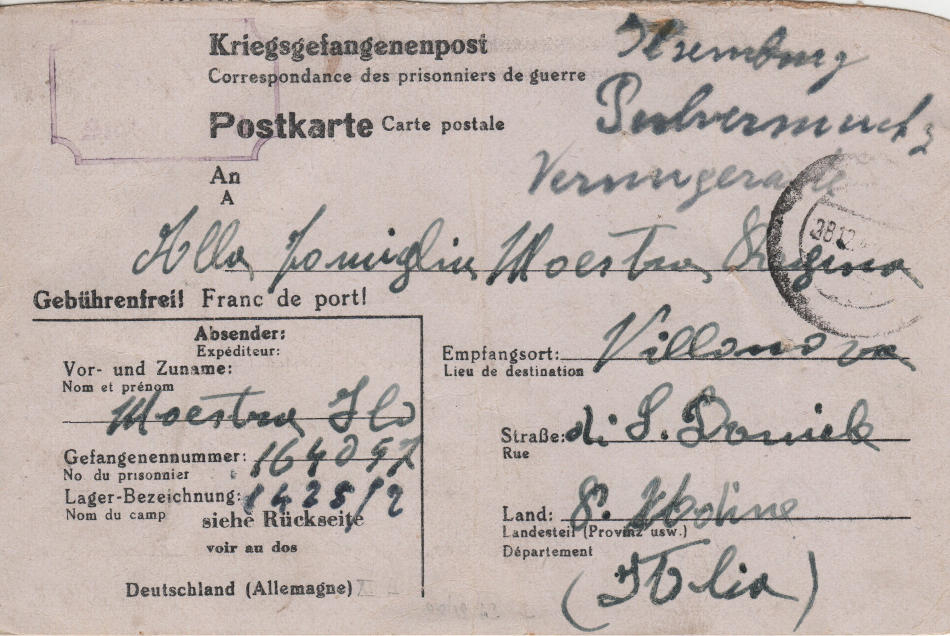 Kriegsgefangenenpost
Correspondance des prisonniers de guerre
Postkarte Carte postale
An
A
Alla famiglia Maestra Regina
Gebührenfrei! Franc de port!
Absender:
Expéditeur:
Vor- und Zuname:
Nom et prénom
Maestra Ilo
Gefangenennummer: 164057
No du prisonnier
Lager-Bezeichnung: 1425/2
Nom du camp
siehe Rückseite
voir au dos
Deutschland (Allemagne)
Empfangsort: Villanova
Lieu de destination
Straße: di S. Daniele
Rue
Land:
Landesteil (Provinz usw.)
Département
(Italia)